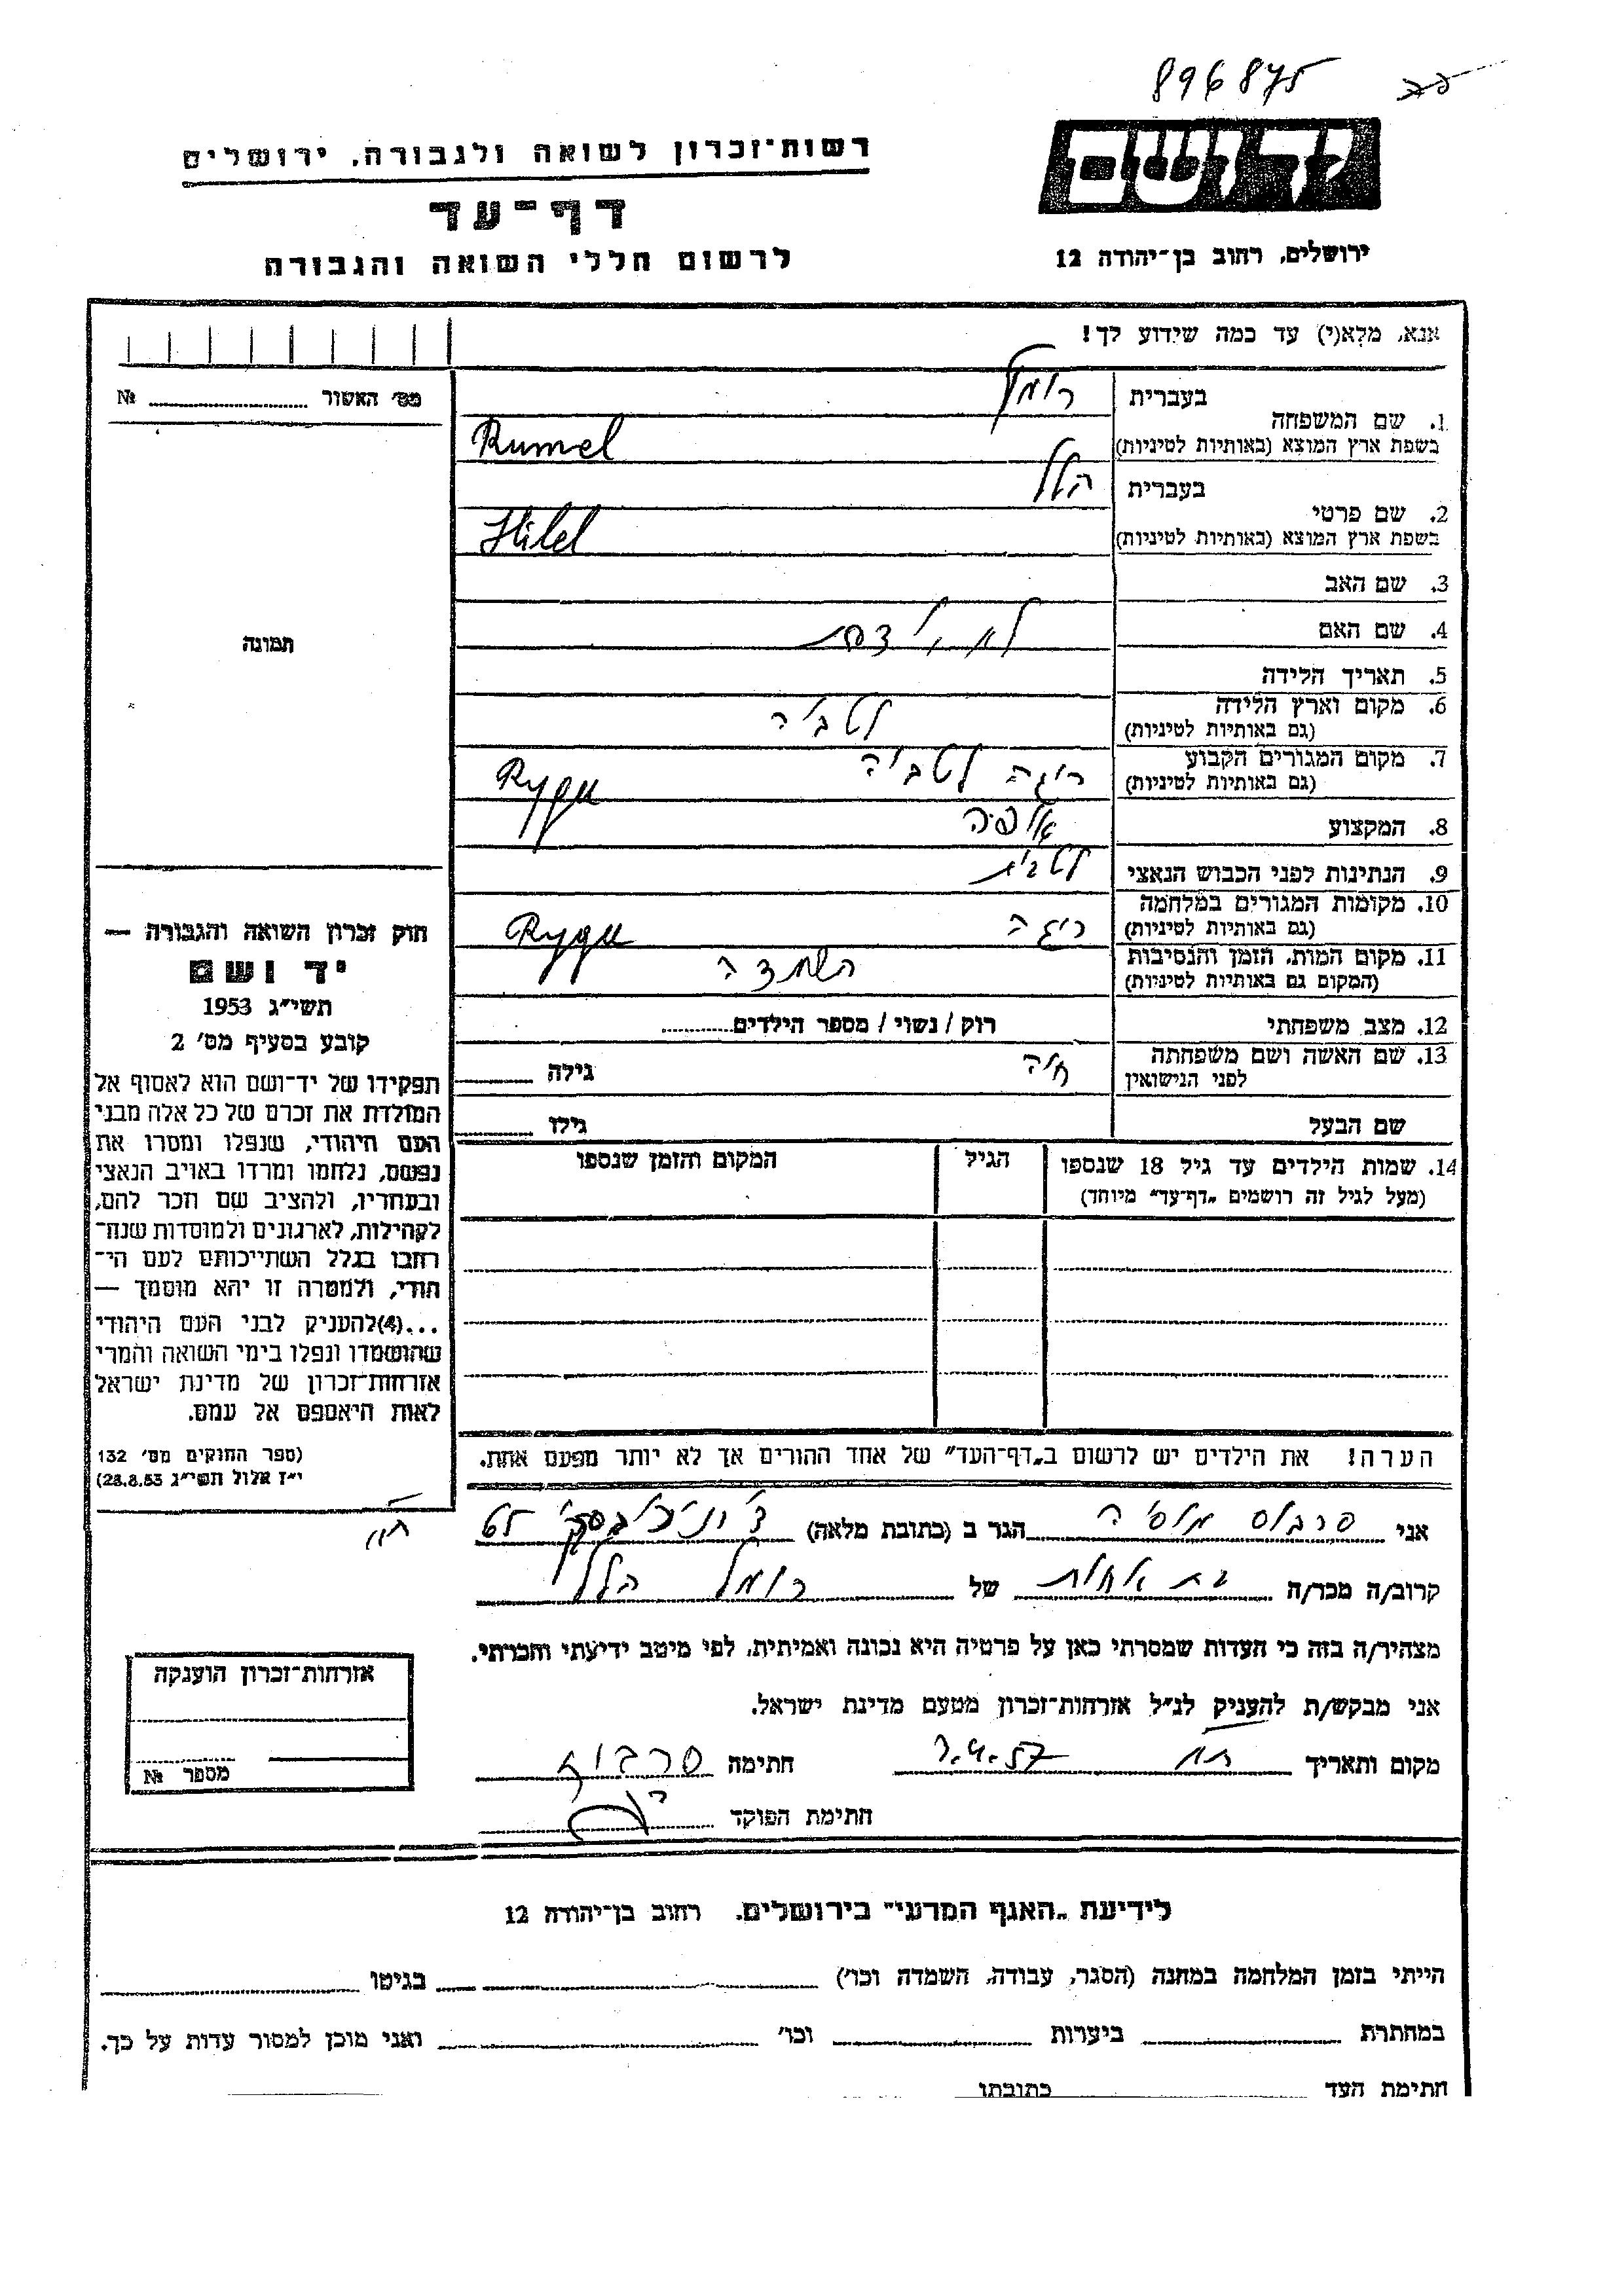 896875
יד ושם
רשות־זכרון לשואה ולגבורה, ירושלים
דף־עד
לרשום חללי השואה והגבורה
ירושלים, רחוב בן־יהודה 12
אנא, מלא(י) עד כמה שידוע לך!
מס׳ האשור ........ №
1. שם המשפחה בעברית רומל
בשפת ארץ המוצא (באותיות לטיניות) Rumel
2. שם פרטי בעברית הלל
בשפת ארץ המוצא (באותיות לטיניות) Hilel
3. שם האב
4. שם האם לא
5. תאריך הלידה
6. מקום וארץ הלידה לטביה
(גם באותיות לטיניות)
7. מקום המגורים הקבוע ריגה לטביה Ryga
(גם באותיות לטיניות)
8. המקצוע אופה
9. הנתינות לפני הכבוש הנאצי לטבית
10. מקומות המגורים במלחמה ריגה Ryga
(גם באותיות לטיניות)
11. מקום המות, הזמן והנסיבות השמדה
(המקום גם באותיות לטיניות)
12. מצב משפחתי רוק / נשוי / מספר הילדים........
13. שם האשה ושם משפחתה חיה גילה
לפני הנישואין
שם הבעל גילו
14. שמות הילדים עד גיל 18 שנספו הגיל המקום והזמן שנספו
(מעל לגיל זה רושמים „דף־עד״ מיוחד)
הערה! את הילדים יש לרשום ב„דף־העד״ של אחד ההורים אך לא יותר מפעם אחת.
תמונה
חוק זכרון השואה והגבורה —
יד ושם
תשי״ג 1953
קובע בסעיף מס׳ 2
תפקידו של יד־ושם הוא לאסוף אל
המולדת את זכרם של כל אלה מבני
העם היהודי, שנפלו ומסרו את
נפשם, נלחמו ומרדו באויב הנאצי
ובעוזריו, ולהציב שם וזכר להם,
לקהילות, לארגונים ולמוסדות שנח־
רבו בגלל השתייכותם לעם הי־
הודי, ולמטרה זו יהא מוסמך —
...(4)להעניק לבני העם היהודי
שהושמדו ונפלו בימי השואה והמרי
אזרחות־זכרון של מדינת ישראל
לאות היאספם אל עמם.
(ספר החוקים מס׳ 132
י״ז אלול תשי״ג 28.8.53)
אני הגר ב (כתובת מלאה)
קרוב/ה מכר/ה בת אחות של רומל הלל
מצהיר/ה בזה כי העדות שמסרתי כאן על פרטיה היא נכונה ואמיתית, לפי מיטב ידיעתי והכרתי.
אני מבקש/ת להעניק לנ״ל אזרחות־זכרון מטעם מדינת ישראל.
מקום ותאריך חתימה
חתימת הפוקד
אזרחות־זכרון הוענקה
מספר №
לידיעת „האגף המדעי״ בירושלים, רחוב בן־יהודה 12
הייתי בזמן המלחמה במחנה (הסגר, עבודה, השמדה וכו׳) בגיטו
במחתרת ביערות וכו׳ ואני מוכן למסור עדות על כך.
חתימת העד כתובתו